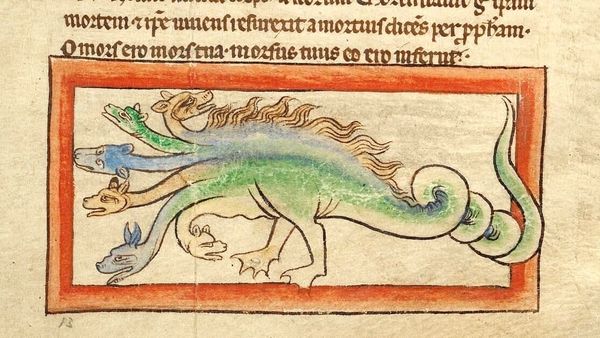 mortem ⁊ ip̃e uiuens resurexit a mortuis dicẽs per ꝓpħam·
O mors ero mors tua· morsus tuus eo ero inferne·
13